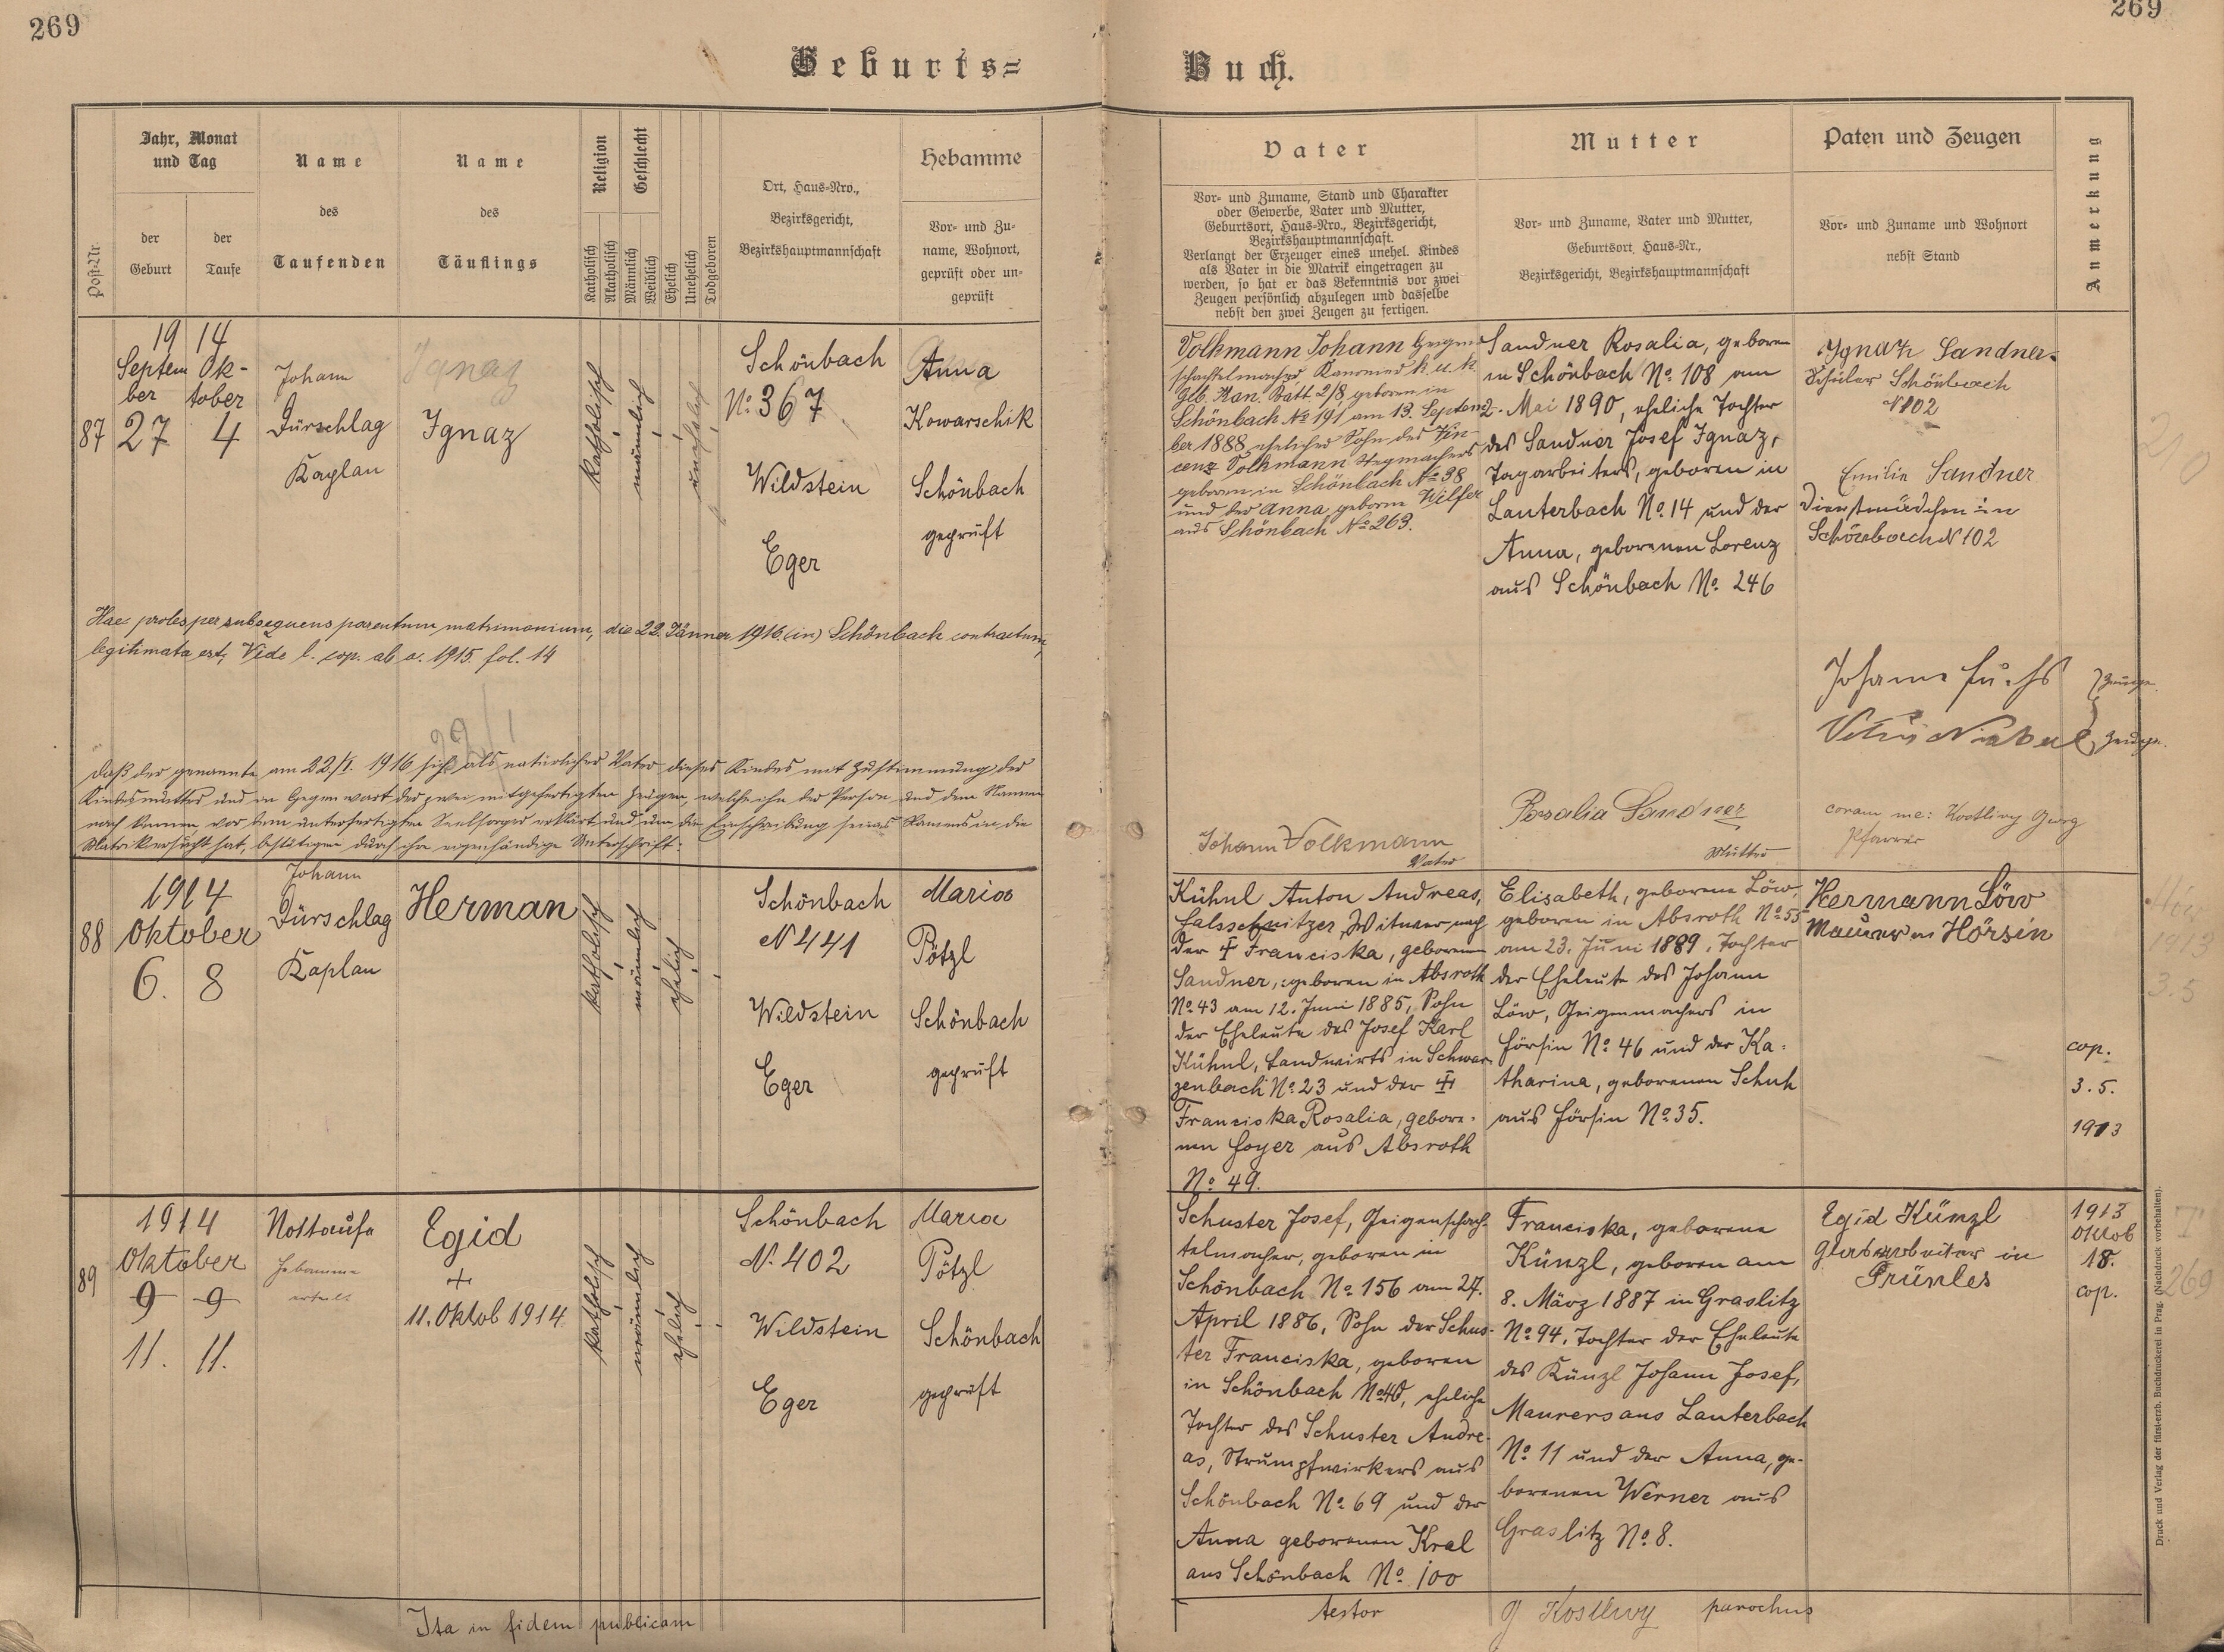 269
269
Geburts=
Buch.
Post-Nr
Jahr, Monat
und Tag
der
Geburt
der
Taufe
Name
des
Taufenden
Name
des
Täuflings
Religion
Katholisch
Akatholisch
Geschlecht
Männlich
Weiblich
Ehelich
Unehelich
Todgeboren
Ort, Haus-Nro.,
Bezirksgericht,
Bezirkshauptmannschaft
Hebamme
Vor- und Zu-
name, Wohnort,
geprüft oder un-
geprüft
Vater
Vor- und Zuname, Stand und Charakter
oder Gewerbe, Vater und Mutter,
Geburtsort, Haus-Nro., Bezirksgericht,
Bezirkshauptmannschaft.
Verlangt der Erzeuger eines unehel. Kindes
als Vater in die Matrik eingetragen zu
werden, so hat er das Bekenntnis vor zwei
Zeugen persönlich abzulegen und dasselbe
nebst den zwei Zeugen zu fertigen.
Mutter
Vor- und Zuname, Vater und Mutter,
Geburtsort, Haus-Nr.,
Bezirksgericht, Bezirkshauptmannschaft
Paten und Zeugen
Vor- und Zuname und Wohnort
nebst Stand
Anmerkung
87
1914
Septem Ok-
ber tober
27 4
Johann
Dürschlag
Kaplan
Ignaz
Ignaz
katholisch
männlich
unehelich
Schönbach
No 367
Wildstein
Eger
Anna
Kowarschik
Schönbach
geprüft
Volkmann Johann Geigen
schachtelmacher Kanonier k. u. k.
Geb. Kan. Batt. 2/8, geboren in
Schönbach No 191 am 13. Septem-
ber 1888, ehelicher Sohn des Vin-
cenz Volkmann Stegmachers
geboren in Schönbach No 98
und der Anna geborne Wilfer
aus Schönbach No 263.
Sandner Rosalia, geboren
in Schönbach No 108 am
2. Mai 1890, eheliche Tochter
des Sandner Josef Ignaz,
Tagarbeiters, geboren in
Lauterbach No. 14 und der
Anna, geborenen Lorenz
aus Schönbach No. 246
Ignaz Sandner
Schüler Schönbach
N 102
Emilie Sandner
Dienstmädchen in
Schönbach N 102
Haec proles per subsequens parentum matrimonium, die 22. Jänner 1916 (in) Schönbach contractum,
legitimata est; Vide l. cop. ab a. 1915. fol. 14
22/1
Johann Fuchs } Zeuge.
Zeuge.
Daß der genannte am 22./I. 1916 sich als natürlicher Vater dieses Kindes mit Zustimmung der
Kindesmutter und in Gegenwart der zwei mitgefertigten Zeugen, welche ihn der Person und dem Namen
nach kennen vor dem unterfertigten Seelsorger erklärt und um die Einschreibung seines Namens in die
Matrik ersucht hat, bestätigen durch ihre eigenhändige Unterschrift:
Johann Volkmann
Vater
Rosalia Sandner
Mutter
coram me: Georg
Pfarrer
88
1914
Oktober
6. 8
Johann
Dürschlag
Kaplan
Herman
katholisch
männlich
ehelich
Schönbach
N 441
Wildstein
Eger
Maria
Pötzl
Schönbach
geprüft
Kühnl Anton Andreas,
Halsschnitzer, Witwer nach
der Franciska, geborenen
Sandner, geboren in Absroth
No. 43 am 12. Juni 1885, Sohn
der Eheleute des Josef Karl
Kühnl, Landwirts in Schwar-
zenbach No. 23 und der
Franciska Rosalia, gebore-
nen Hoyer aus Absroth
No. 49.
Elisabeth, geborene Löw,
geboren in Absroth No. 55
am 23. Juni 1889, Tochter
der Eheleute des Johann
Löw, Geigenmachers in
Hörsin No. 46 und der Ka-
tharina, geborenen Schuh
aus Hörsin No. 35.
Hermann Löw
Maurer in Hörsin
cop.
3. 5.
1913
89
1914
Oktober
9 9
11. 11.
Nottaufe
Hebamme
erteilt
Egid
+
11. Oktob 1914
katholisch
männlich
ehelich
Schönbach
N. 402
Wildstein
Eger
Maria
Pötzl
Schönbach
geprüft
Schuster Josef, Geigenschach-
telmacher, geboren in
Schönbach No. 156 am 27.
April 1886, Sohn der Schus-
ter Franciska, geboren
in Schönbach No. 40, eheliche
Tochter des Schuster Andre-
as, Strumpfwirkers aus
Schönbach No. 69 und der
Anna geborenen Kral
aus Schönbach No. 100
Franciska, geborene
Künzl, geboren am
8. März 1887 in Graslitz
No. 94, Tochter der Eheleute
des Künzl Johann Josef,
Maurers aus Lauterbach
No. 11 und der Anna, ge-
borenen Werner aus
Graslitz No. 8.
Egid Künzl
Glasarbeiter in
Grünles
1913
Oktob
18.
cop.
Ita in fidem publicam
testor
parochus
Druck und Verlag der fürst-erzb. Buchdruckerei in Prag. (Nachdruck vorbehalten).